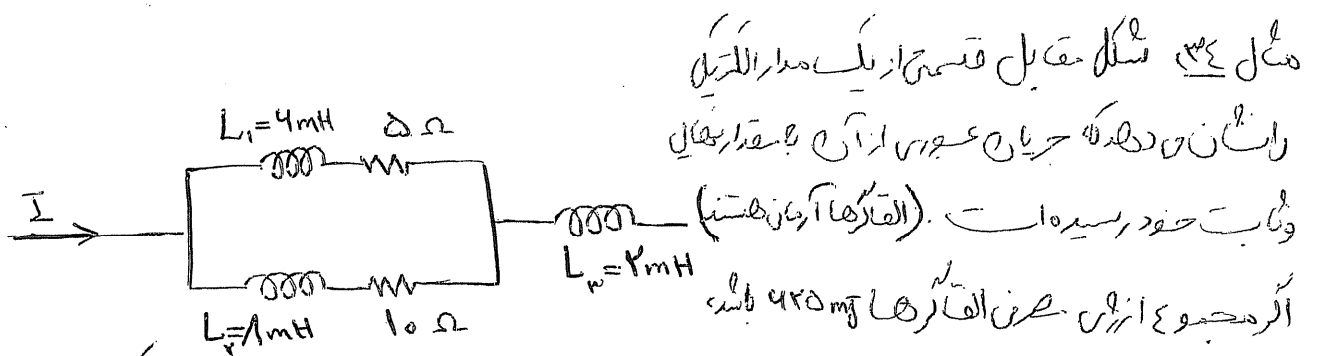 مثال ۳۴) شکل مقابل قسمتی از یک مدار الکتریکی
را نشان می دهد که جریان عبوری از آن به مقدار نهایی
و ثابت خود رسیده است. (القاگرها آرمانی هستند)
اگر مجموع انرژی مصرفی القاگرها ۶۲۵ mJ باشد،
L₁=۶mH
۵ Ω
I
L₃=۲mH
L₂=۸mH
۱۰ Ω